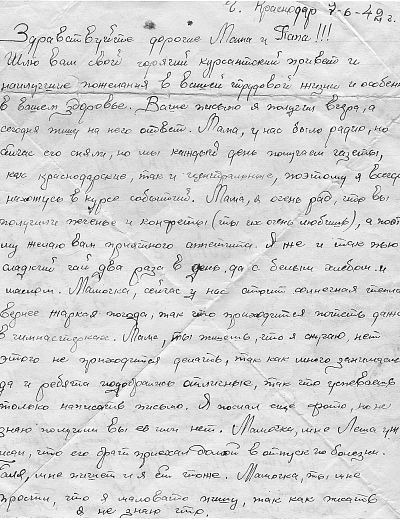 г. Краснодар 7-6-49 г.
Здравствуйте дорогие Мама и Папа!!!
Шлю вам свой горячий курсантский привет и
наилучшие пожелания в вашей трудовой жизни и особен
в вашем здоровье. Ваше письмо я получил вчера, а
сегодня пишу на него ответ. Мама, у нас было радио, но
сейчас его сняли, но мы каждый день получаем газеты,
как краснодарские, так и центральные, поэтому я всегда
нахожусь в курсе событий. Мама, я очень рад, что вы
получили печенье и конфеты (ты их очень любишь), а поэто
му желаю вам приятного аппетита. Я же и так пью
сладкий чай два раза в день, да с белым хлебом и
маслом. Мамочка, сейчас у нас стоит солнечная теплая
вернее жаркая погода, так что приходится ходить даже
в гимнастерках. Мама, ты пишешь, что я скучаю, нет
этого не приходится делать, так как много занимаемся
да и ребята подобрались отличные, так что успеваешь
только написать письмо. Я послал еще фото, но не
знаю получили вы его или нет. Мамочка, мне Леша
писал, что его брат приехал домой в отпуск по болезни.
мне пишет и я ей тоже. Мамочка, ты мне
прости, что я маловато пишу, так как писать
я не знаю что.